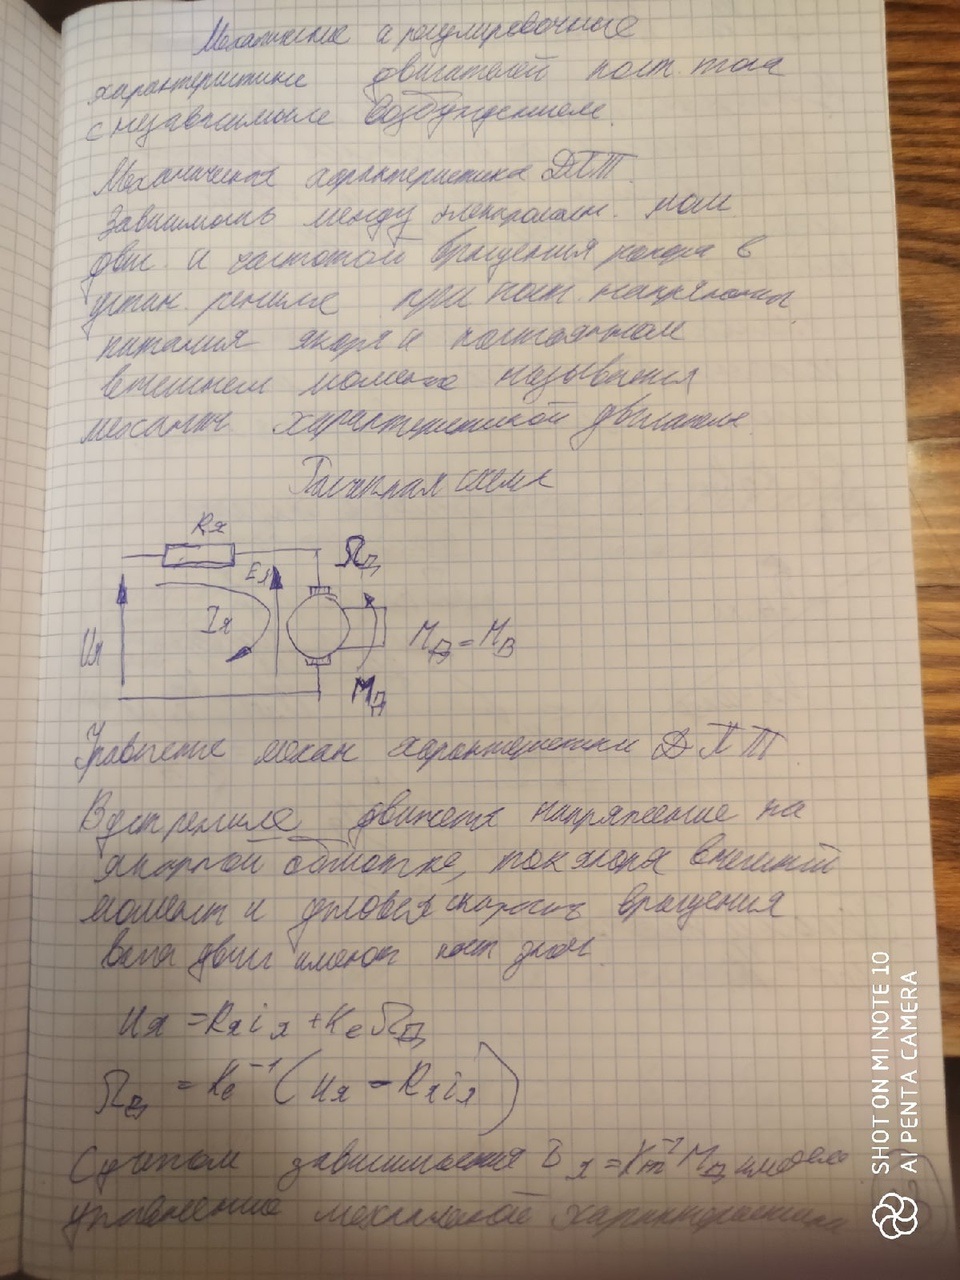 Механические и регулировочные
характеристики двигателей пост. тока
с независимым возбуждением.
Механическая характеристика ДПТ.
Зависимость между электромагн. мом
двиг. и частотой вращения ротора в
устан. режиме при пост. напряжении
питания якоря и постоянном
внешнем моменте называется
механич характеристикой двигателя.
Расчетная схема
Rя
Ωд
Eя
Iя
Uя
Mд = Mв
Mд
Уравнение механ характеристики ДПТ
В уст режиме движения напряжение на
якорной обмотке, ток якоря внешний
момент и угловая скорость вращения
вала двиг имеют пост знач.
Uя = Rя iя + Ke Ωд
Ωд = Ke⁻¹ (Uя − Rя iя)
С учетом зависимости Iя = Km⁻¹ Mд имеем
уравнение механической характеристики
SHOT ON MI NOTE 10
AI PENTA CAMERA